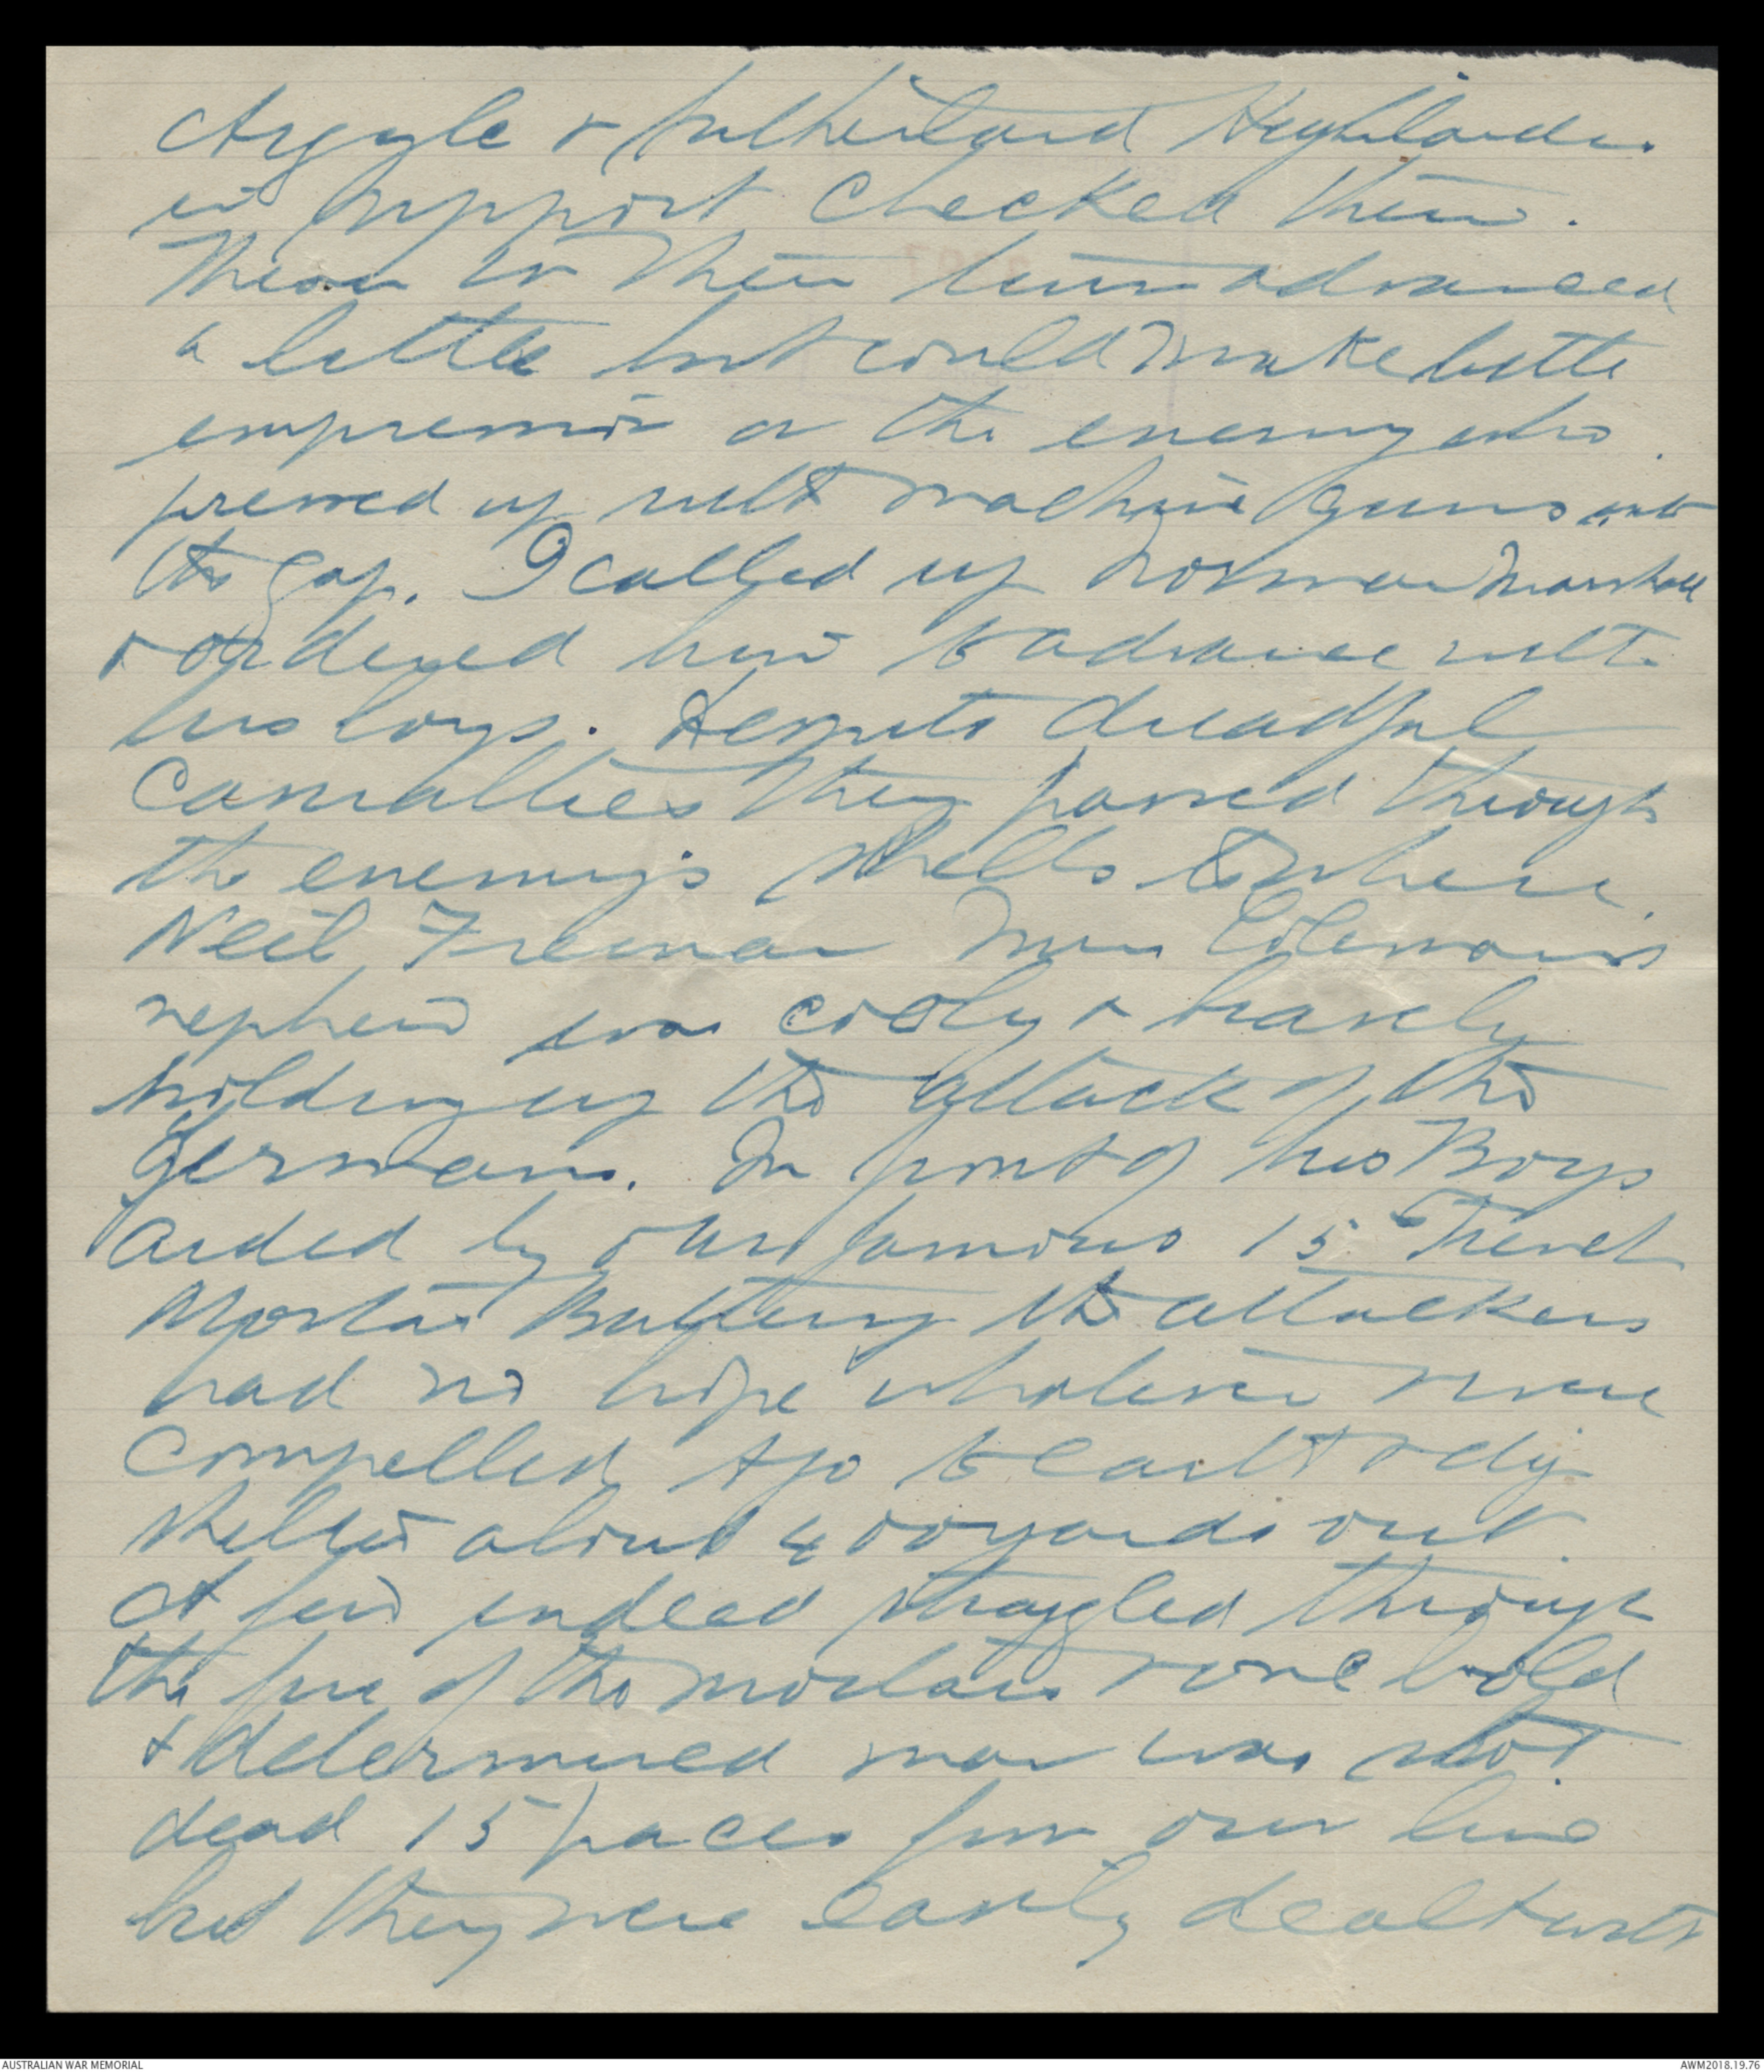 Argyle & Sutherland Highlanders
in support checked them.
These in their turn advanced
a little but could make little
impression on the enemy who
pressed up with machine guns into
the gap. I called up Norman Marshall
& ordered him to advance with
his boys. Despite dreadful
casualties they passed through
the enemy's shells to where
Neil Freeman Mrs Coleman's
nephew was cooly & bravely
holding up the attack of the
Germans. In front of his Boys
aided by our famous 15th Trench
Mortar Battery the attackers
had no hope whatever & were
compelled to go to earth & dig
shelter about 400 yards out.
A few indeed straggled through
the fire of the mortars & one bold
& determined man was shot
dead 15 paces from our line
but they were easily dealt with
AUSTRALIAN WAR MEMORIAL
AWM2018.19.76